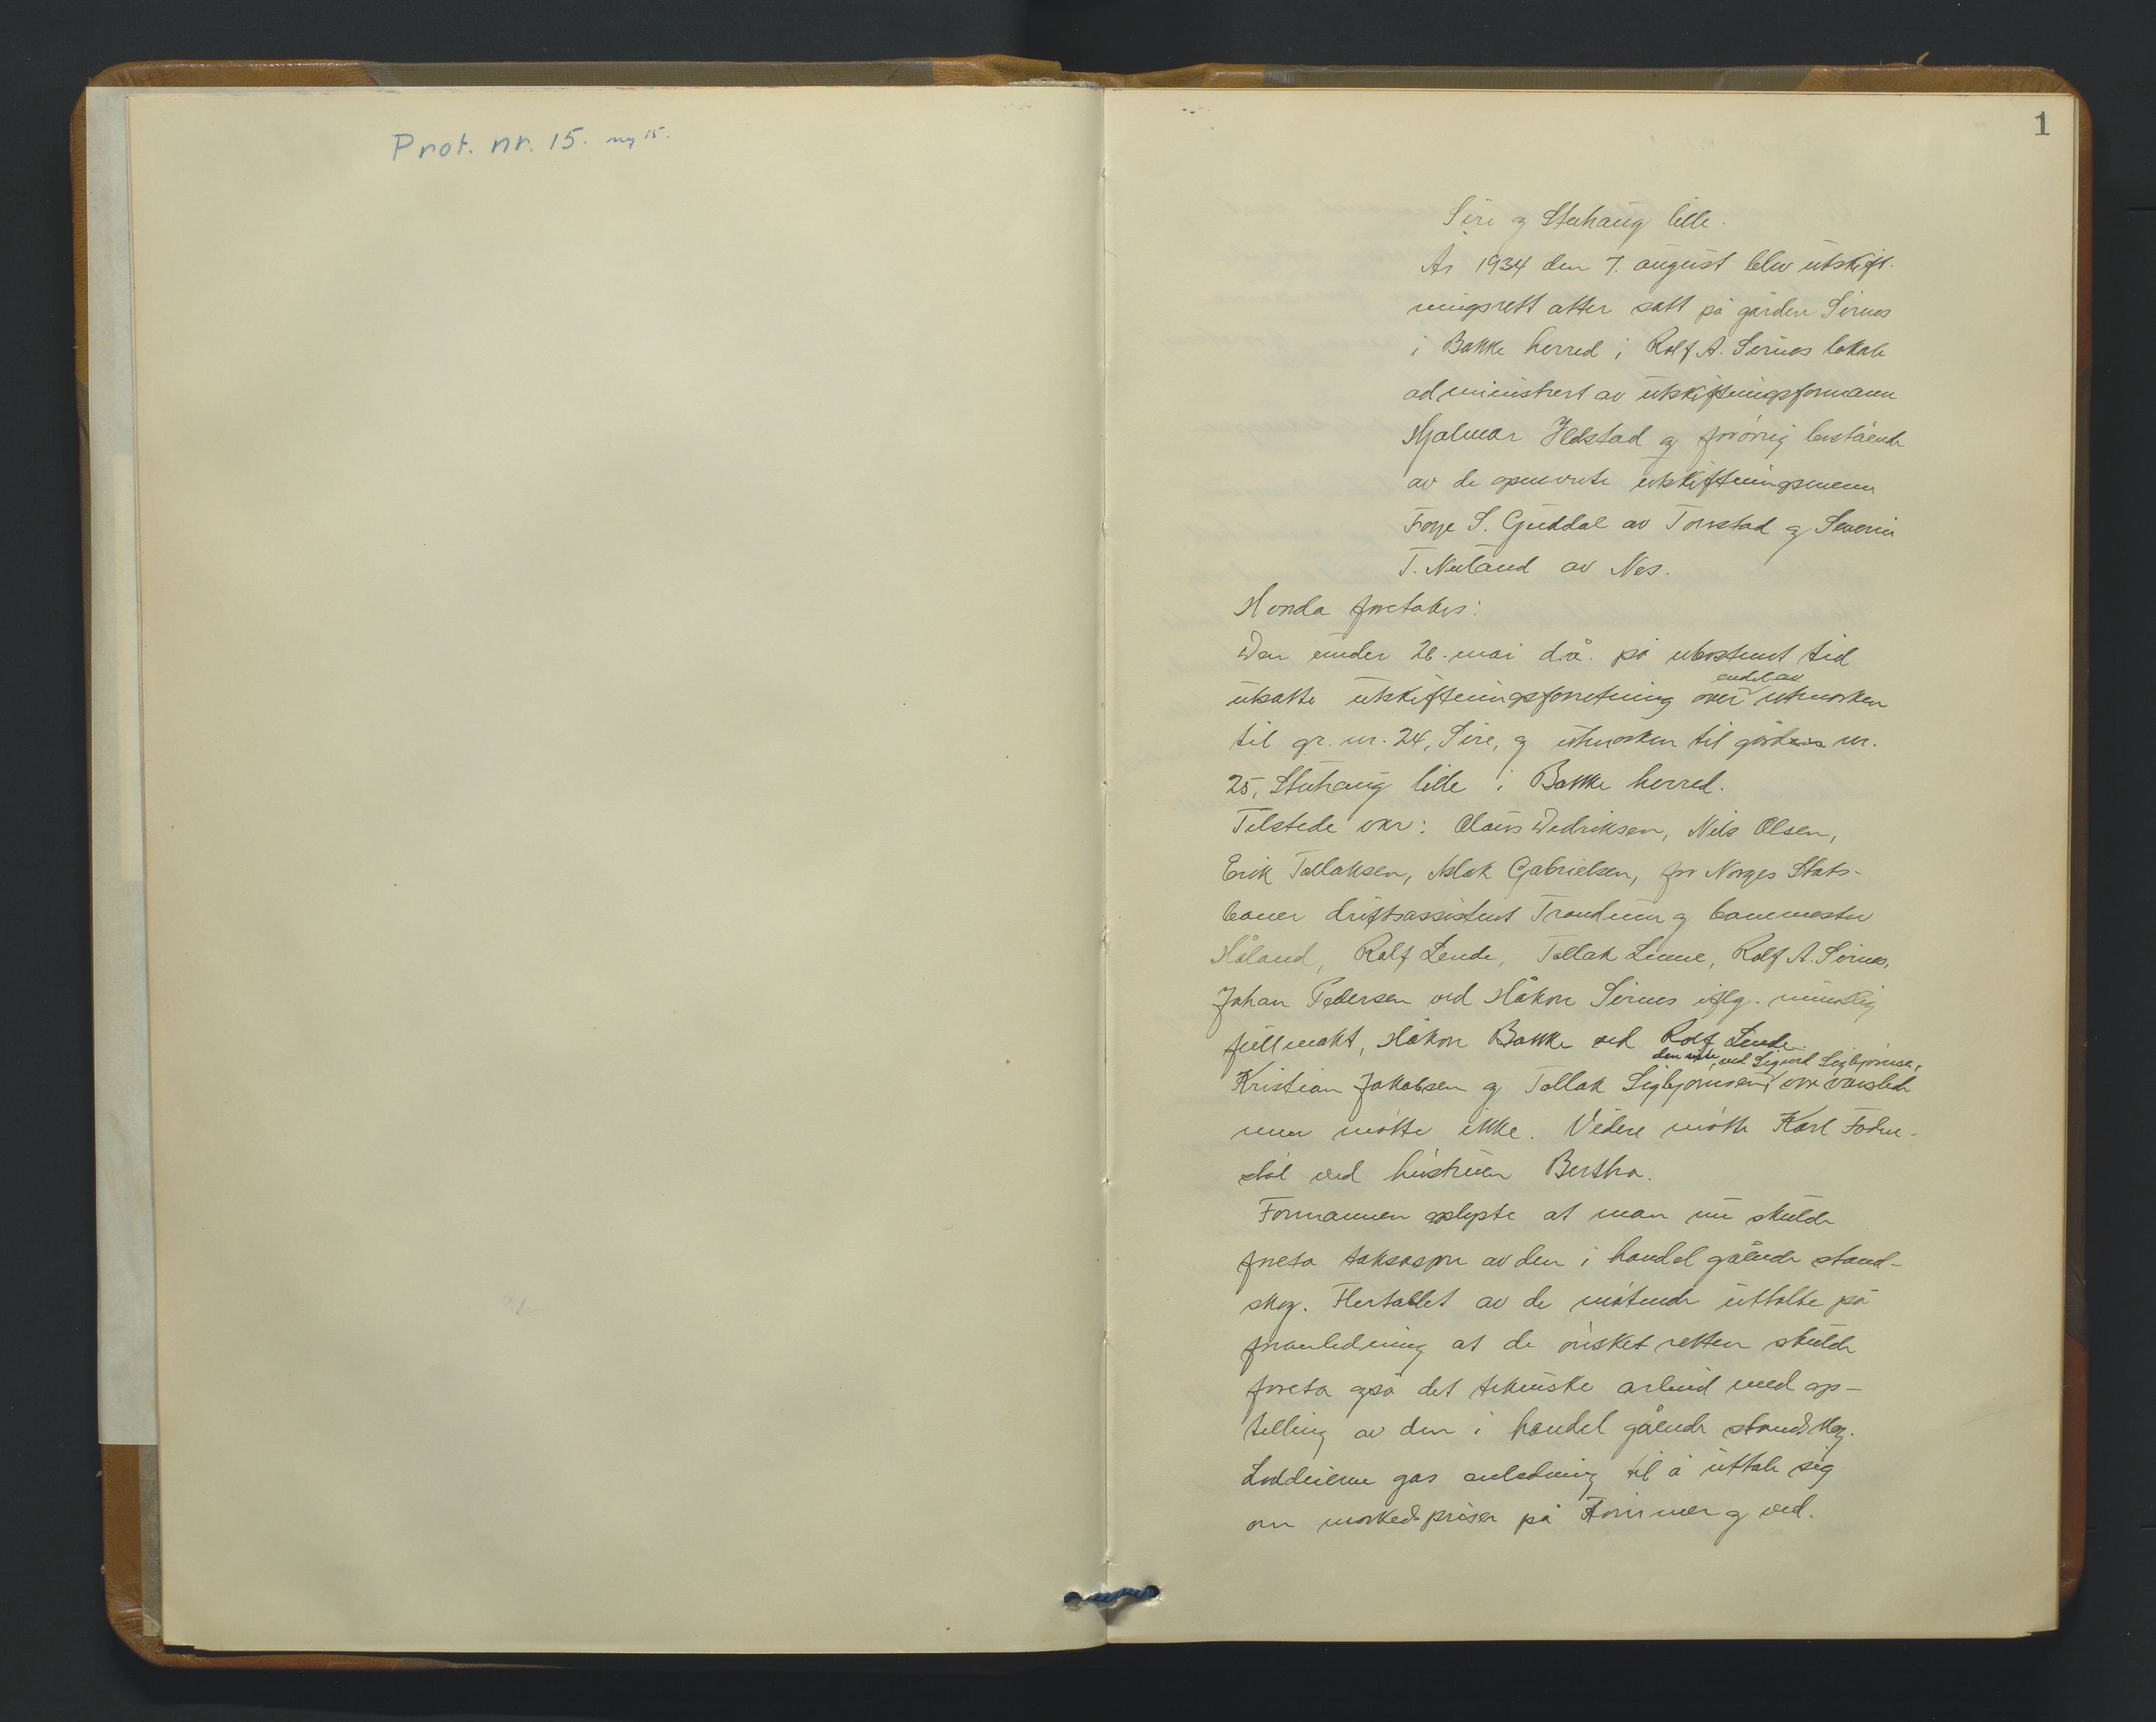 Prot. nr. 15. ny 15.
1
Sire og Stuhaug lille.
År 1934 den 7. august blev utskift-
ningsrett atter satt på gården Sirnes
i Bakke herred i Rolf A. Sirnes lokale
administrert av utskiftningsformann
Hjalmar Helstad og forøvrig bestående
av de opnevnte utskiftningsmenn
S. Guddal av Tonstad og Severin
T. Nuland av Nes.
Honda foretakes:
Den under 26. mai d.å. på ubestemt tid
endel av
utsatte utskiftningsforretning over utmarken
til gr. nr. 24, Sire, og utmarken til gårds nr.
25, Stuhaug lille i Bakke herred.
Tilstede var: Claus Didriksen, Nils Olsen,
Erik Tallaksen, Aslak Gabrielsen, for Norges Stats-
baner driftsassistent og banemester
Håland, Rolf Lende, Tallak Lunne, Rolf A. Sirnes,
Johan Pedersen ved Håkon Sirnes iflg. muntlig
fullmakt, Håkon Bakke ved Rolf Lende.
den siste, ved Sigurd Sigbjørnsen,
Kristian Jakobsen og Tallak Sigbjørnsen, var varslede
men møtte ikke. Videre møtte Karl
ved hustruen Bertha.
Formannen oplyste at man nu skulde
foreta taksasjon av den i handel gående stand-
skog. Flertallet av de møtende uttalte på
foranledning at de ønsket retten skulde
foreta også det tekniske arbeid med op-
telling av den i handel gående standskog.
Loddeierne gas anledning til å uttale sig
om markedspriser på tømmer og ved.